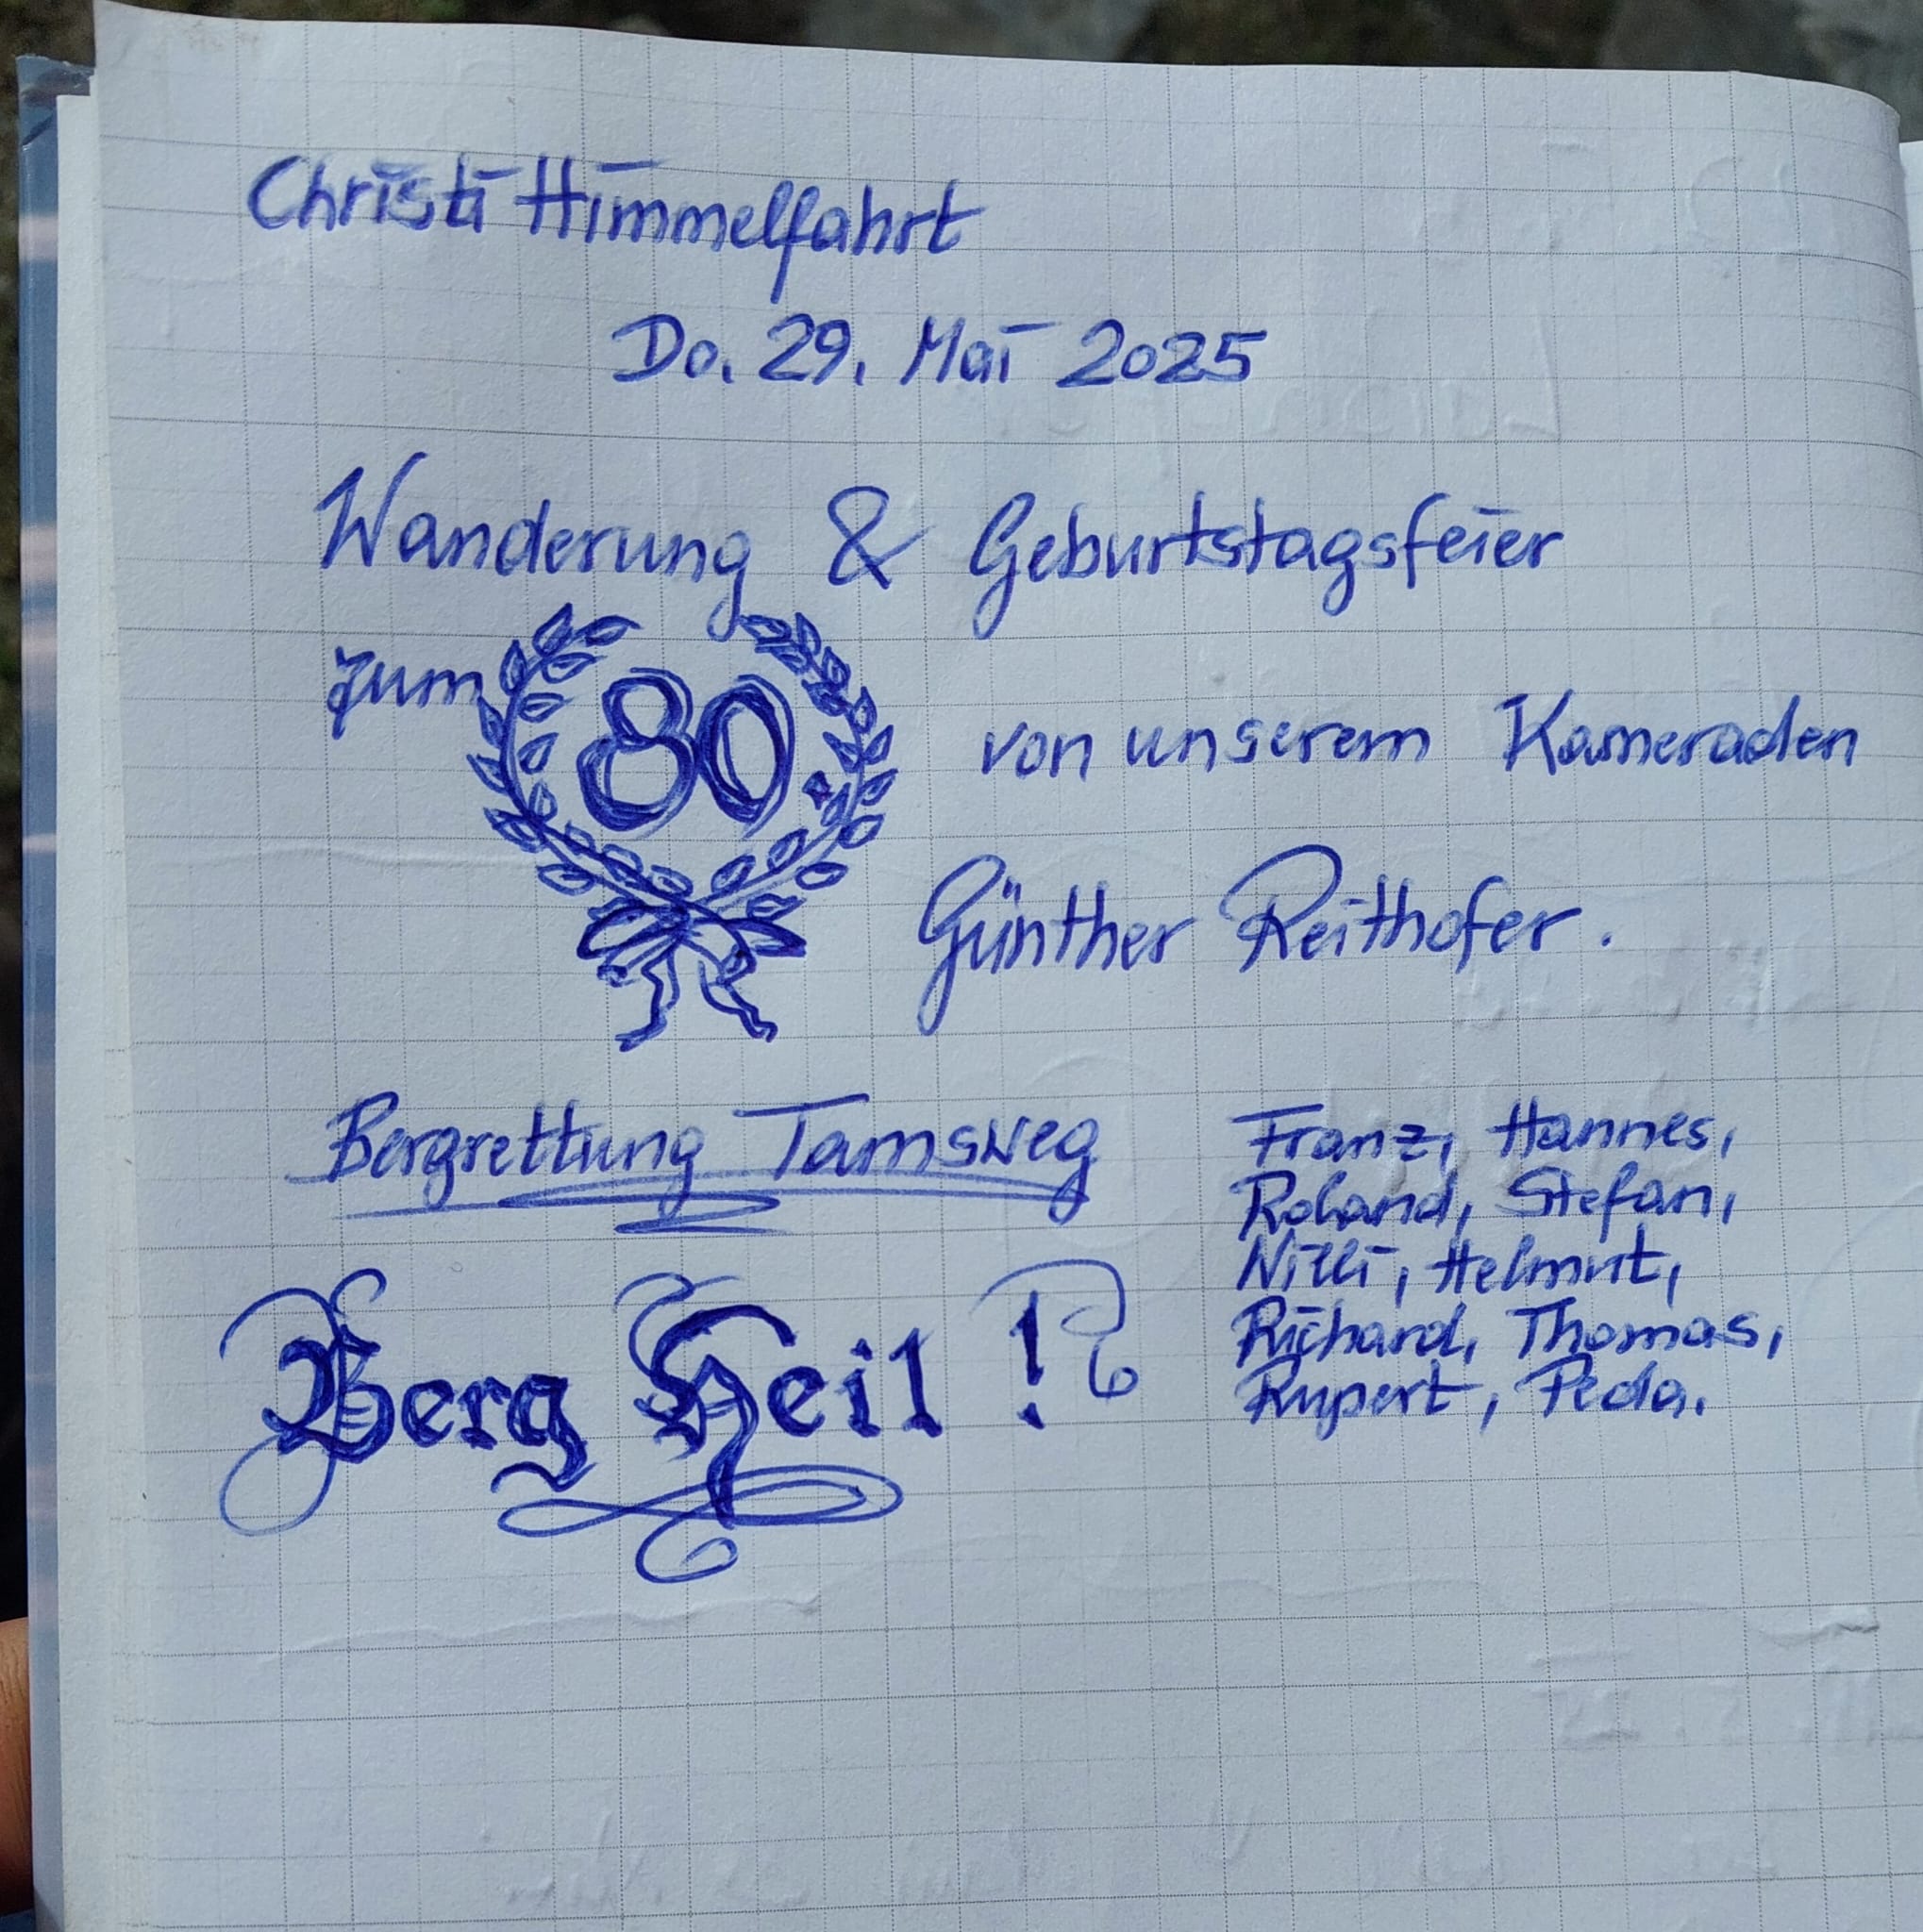 Christi Himmelfahrt
Do. 29. Mai 2025
Wanderung & Geburtstagsfeier
zum 80 von unserem Kameraden
Günther Reithofer.
Bergrettung Tamsweg
Berg Heil!
Franz, Hannes,
Roland, Stefan,
Willi, Helmut,
Richard, Thomas,
Rupert, Peda.